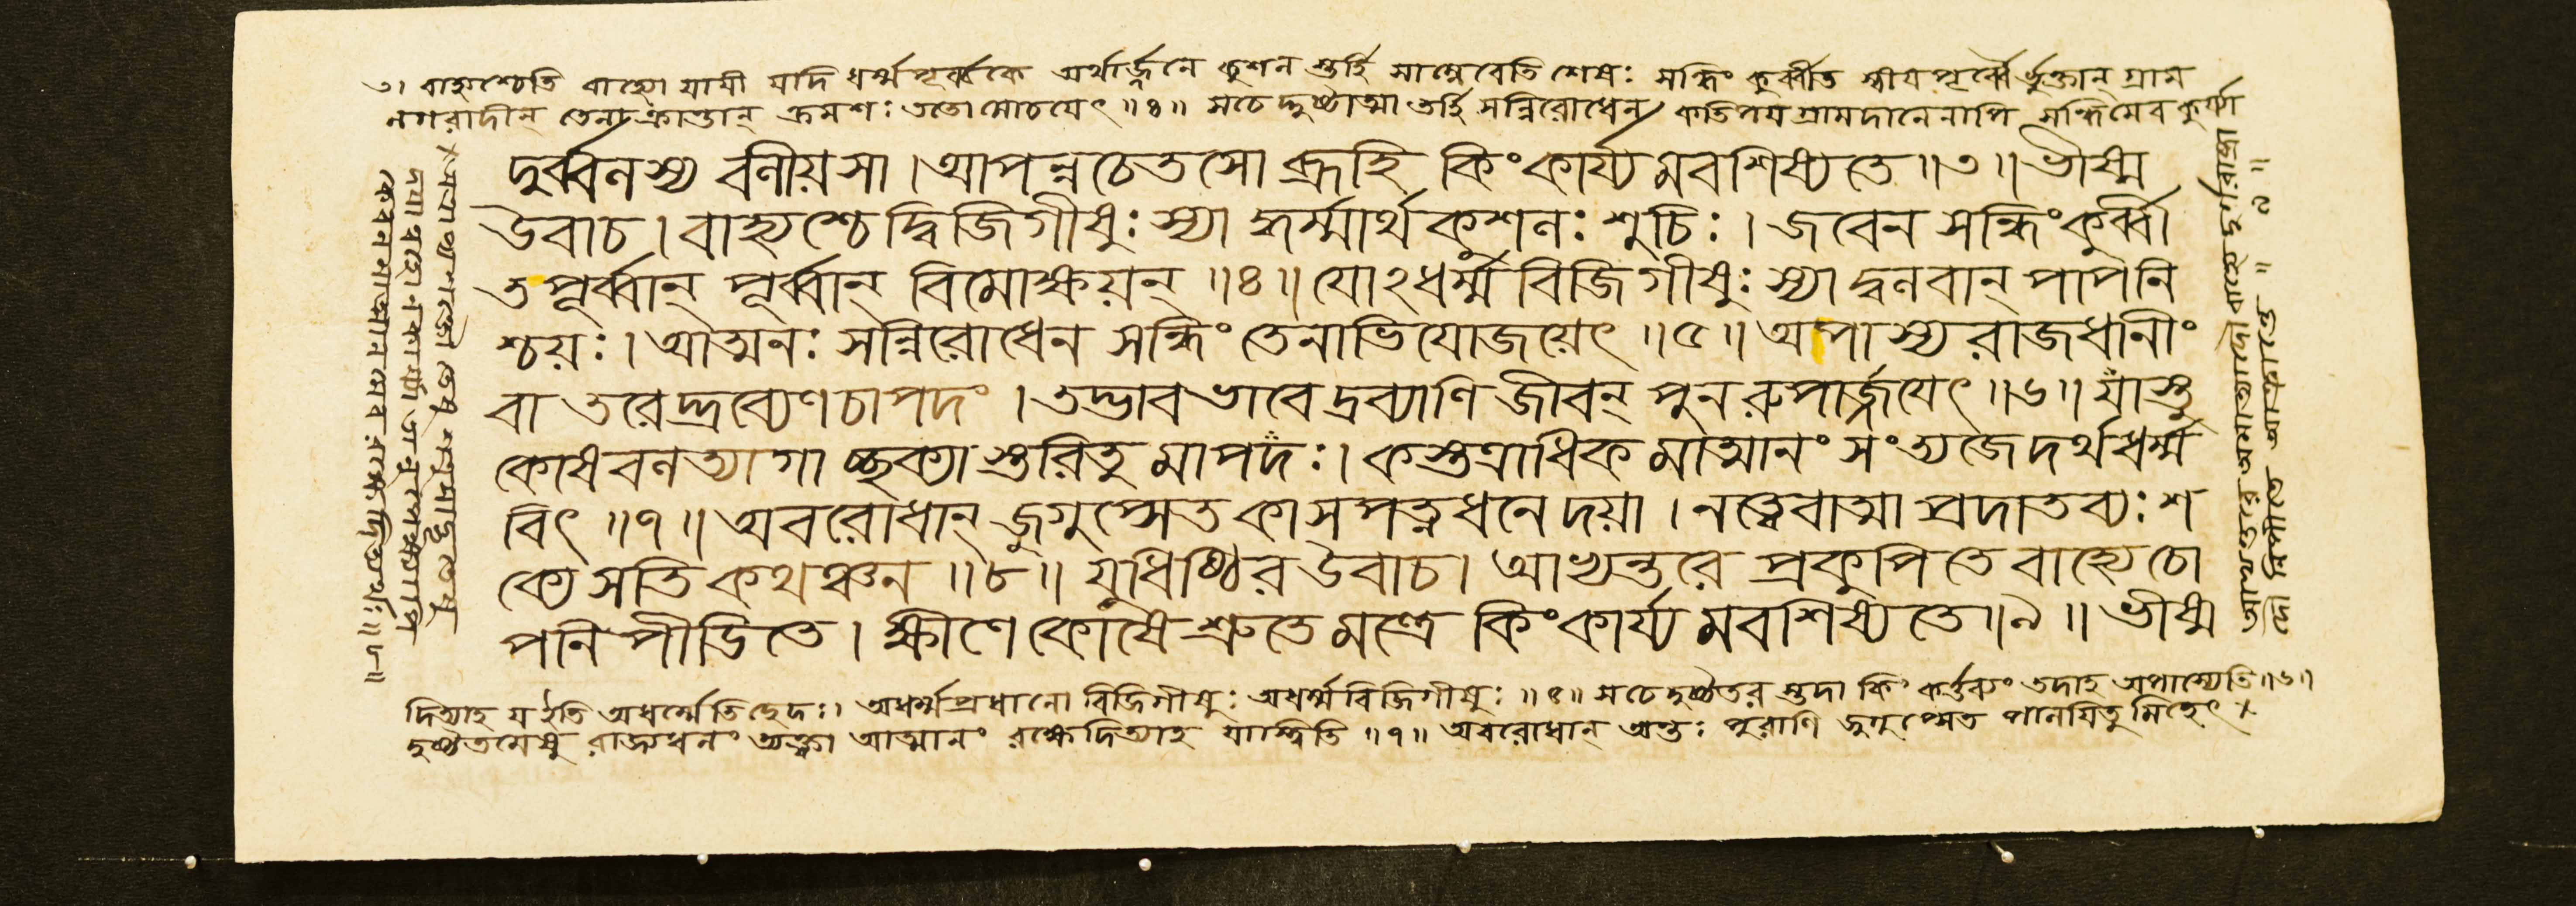 ৩। বাহ্যশ্চেতি বাহ্যো যায়ী যদি ধর্ম্মপূর্ব্বকে অর্থার্জ্জনে কুশল স্তর্হি সাম্নৈবেতি শেষঃ সন্ধিং কুর্ব্বীত স্বীয়পূর্ব্বৈর্ভুক্তান্ গ্রাম
নগরাদীন্ তেনাক্রান্তান্ ক্রমশঃ ততো মোচয়েৎ ॥৪॥ সচেদ্দুষ্টাত্মা তর্হি সন্নিরোধেন কতিপয়গ্রামদানেনাপি সন্ধিমেব কুর্য্যা
দুর্ব্বলস্য বলীয়সা । আপন্নচেতসো ব্রূহি কিংকার্য্য মবশিষ্যতে ॥৩॥ ভীষ্ম
উবাচ । বাহ্যশ্চেদ্বিজিগীষুঃ স্যা দ্ধর্ম্মার্থকুশলঃ শুচিঃ । জবেন সন্ধিংকুর্ব্বী
ত পূর্ব্বান্ পূর্ব্বান্ বিমোক্ষয়ন্ ॥৪॥ যোঽধর্ম্মবিজিগীষুঃ স্যা দ্বলবান্ পাপনি
শ্চয়ঃ । আত্মনঃ সন্নিরোধেন সন্ধিং তেনাভিযোজয়েৎ ॥৫॥ অপাস্য রাজধানীং
বা তরেদ্দ্রব্যেণচাপদং । তদ্ভাবভাবে দ্রব্যাণি জীবন্ পুনরুপার্জ্জয়েৎ ॥৬॥ যাস্তু
কোষবলত্যাগা চ্ছক্যাস্তরিতু মাপদঃ । কস্তত্রাধিক মাত্মানং সংত্যজেদর্থধর্ম্ম
বিৎ ॥৭॥ অবরোধান্ জুগুপ্সেত কা সপত্নধনে দয়া । নত্বেবাত্মা প্রদাতব্যঃ শ
ক্যে সতি কথঞ্চন ॥৮॥ যুধিষ্ঠির উবাচ । আভ্যন্তরে প্রকুপিতে বাহ্যে চো
পনিপীড়িতে । ক্ষীণে কোষে শ্রুতে মন্ত্রে কিংকার্য্য মবশিষ্যতে ॥৯॥ ভীষ্ম
দিত্যাহ য ইতি অধর্ম্মেতিচ্ছেদঃ। অধর্ম্মপ্রধানো বিজিগীষুঃ অধর্ম্মবিজিগীষুঃ ॥৫॥ সচেদ্দুষ্টতর স্তদা কিং কর্ত্তব্যং তদাহ অপাস্যেতি ॥৬॥
দুষ্টতমেষু রাজ্যধনং ত্যক্ত্বা আত্মানং রক্ষেদিত্যাহ যাস্ত্বিতি ॥৭॥ অবরোধান্ অন্তঃ পুরাণি জুগুপ্সেত পালয়িতুমিচ্ছেৎ ×
দয়া
রক্ষেদিত্যর্থঃ ॥৮॥
॥৯॥